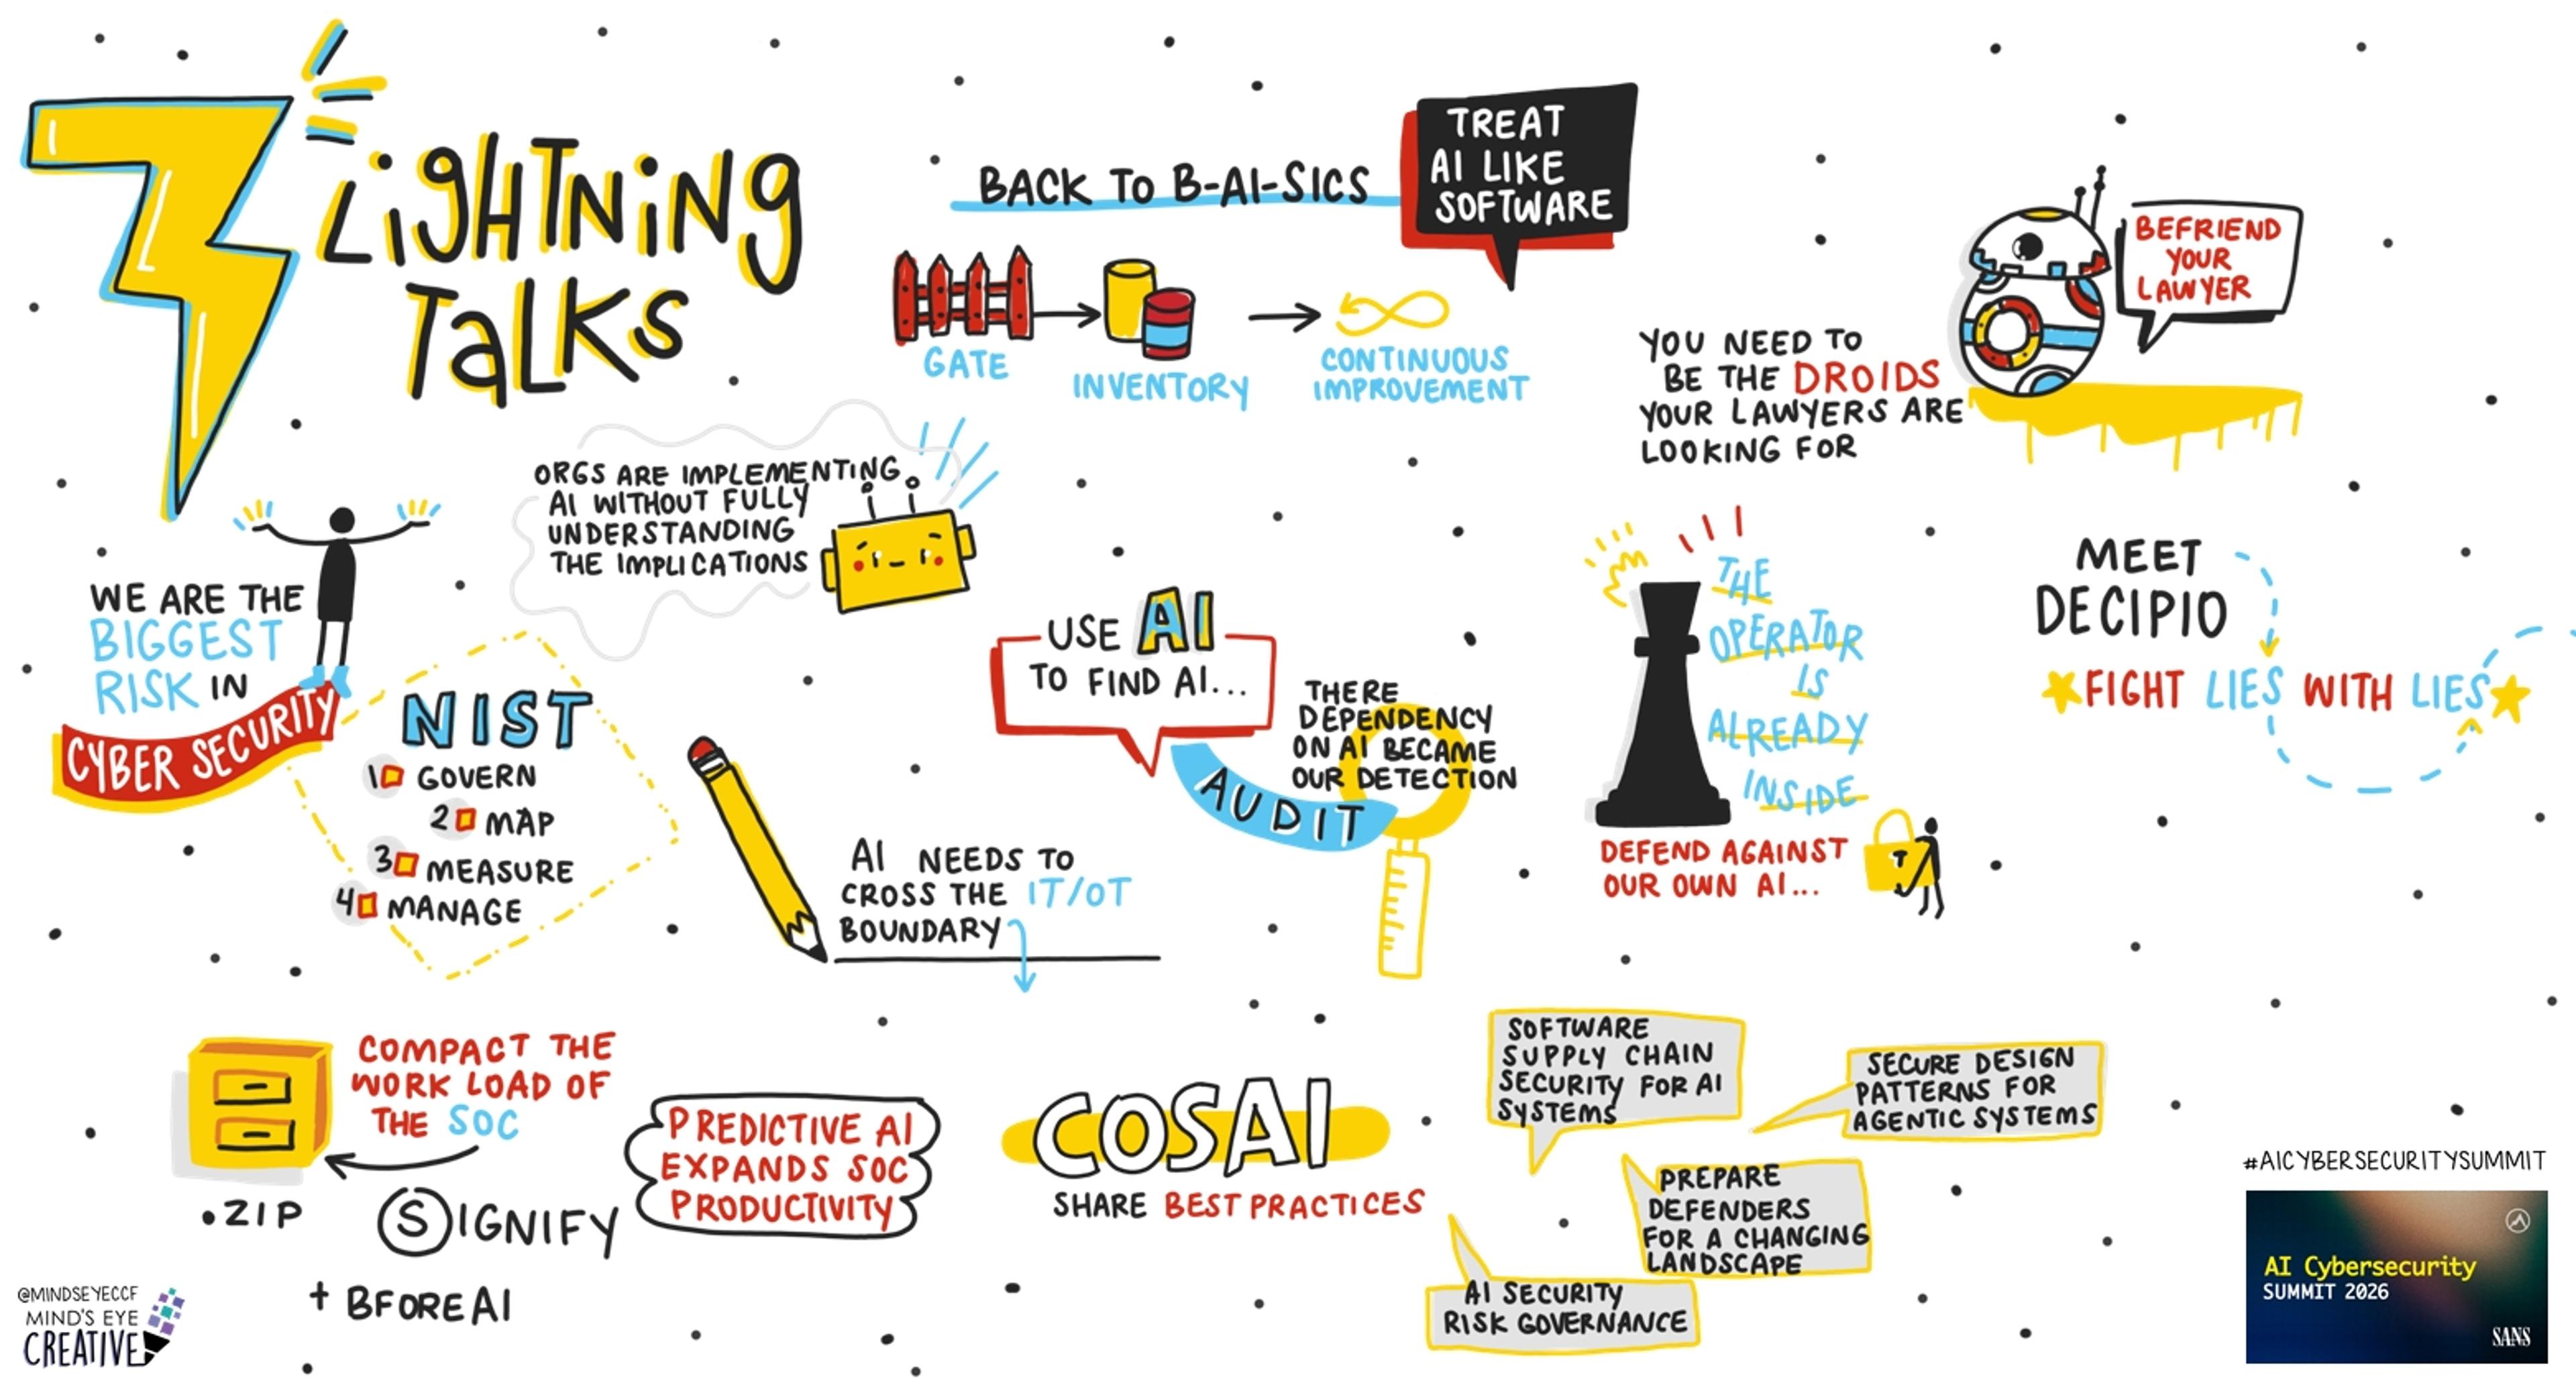 LiGHTNiNG
TaLKS
BACK TO B-AI-SICS
TREAT
AI LIKE
SOFTWARE
GATE
INVENTORY
CONTINUOUS
IMPROVEMENT
BEFRIEND
YOUR
LAWYER
YOU NEED TO
BE THE DROIDS
YOUR LAWYERS ARE
LOOKING FOR
ORGS ARE IMPLEMENTING
AI WITHOUT FULLY
UNDERSTANDING
THE IMPLICATIONS
WE ARE THE
BIGGEST
RISK IN
CYBER SECURITY
NIST
1 GOVERN
2 MAP
3 MEASURE
4 MANAGE
AI NEEDS TO
CROSS THE IT/OT
BOUNDARY
USE AI
TO FIND AI...
AUDIT
THERE
DEPENDENCY
ON AI BECAME
OUR DETECTION
THE
OPERATOR
IS
ALREADY
INSIDE
DEFEND AGAINST
OUR OWN AI...
MEET
DECIPIO
FIGHT LIES WITH LIES
COMPACT THE
WORK LOAD OF
THE SOC
.ZIP
SIGNIFY
+ BFOREAI
PREDICTIVE AI
EXPANDS SOC
PRODUCTIVITY
COSAI
SHARE BEST PRACTICES
SOFTWARE
SUPPLY CHAIN
SECURITY FOR AI
SYSTEMS
SECURE DESIGN
PATTERNS FOR
AGENTIC SYSTEMS
PREPARE
DEFENDERS
FOR A CHANGING
LANDSCAPE
AI SECURITY
RISK GOVERNANCE
#AICYBERSECURITYSUMMIT
AI Cybersecurity
SUMMIT 2026
SANS
@MINDSEYECCF
MIND'S EYE
CREATIVE